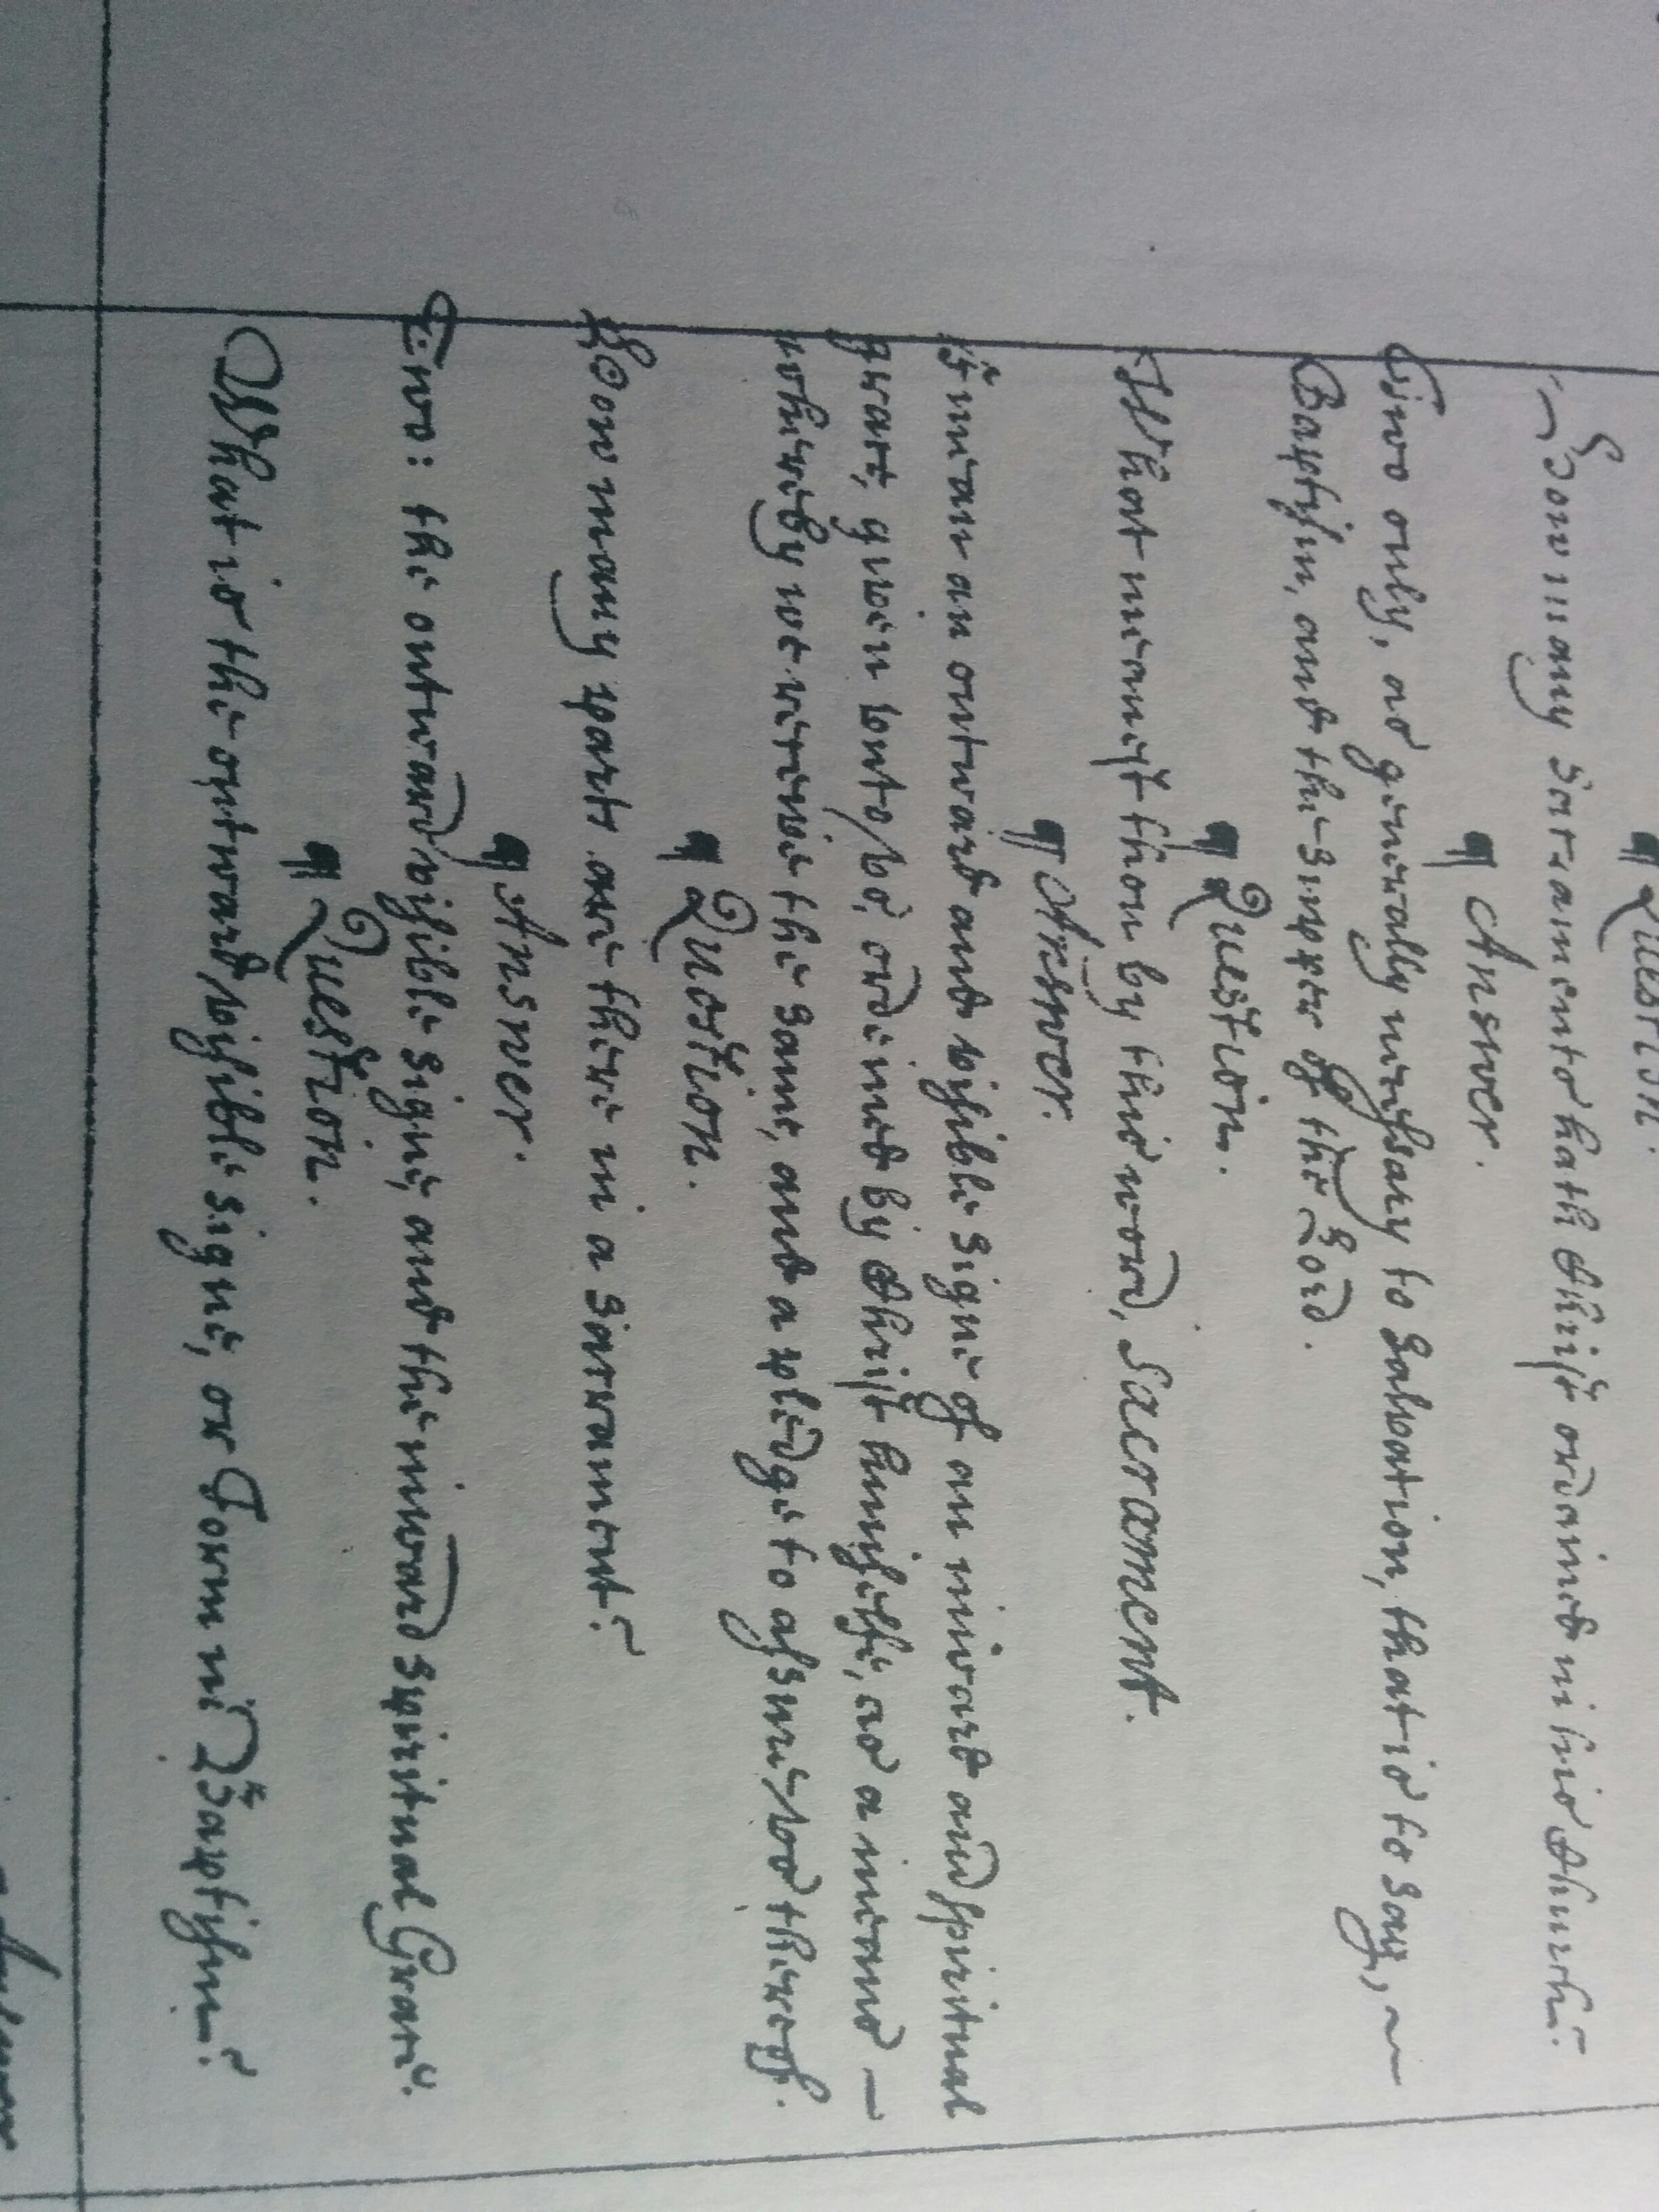 ¶ Question.
How many Sacraments hath Christ ordained in his Church?
¶ Answer.
Two only, as generally necessary to Salvation, that is to say, ~
Baptism, and the Supper of the Lord.
¶ Question.
What meanest thou by this word, Sacrament.
¶ Answer.
I mean an outward and visible signe of an inward and spiritual
grace, given unto us, ordained by Christ himselfe, as a means –
whereby we receive the same, and a pledge to assure us thereof.
¶ Question.
How many parts are there in a Sacrament?
¶ Answer.
Two: the outward visible signe, and the inward spiritual Grace.
¶ Question.
What is the outward visible signe, or Form in Baptism?
Answer